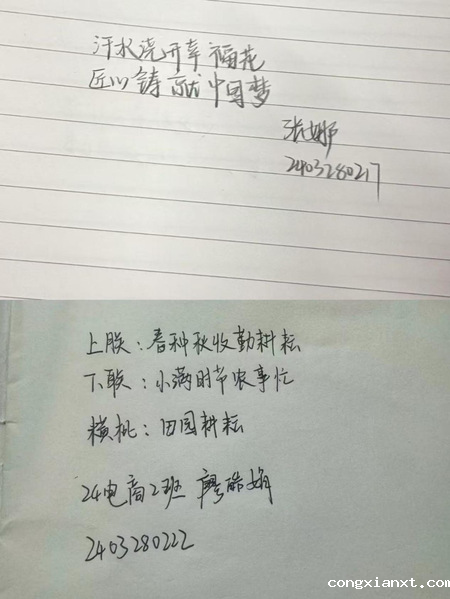 汗水浇开幸福花
匠心铸就中国梦
张娜
2403280217
上联:春种秋收勤耕耘
下联:小满时节农事忙
横批:田园耕耘
24电商2班 廖皓娟
2403280222
congxianxt.com